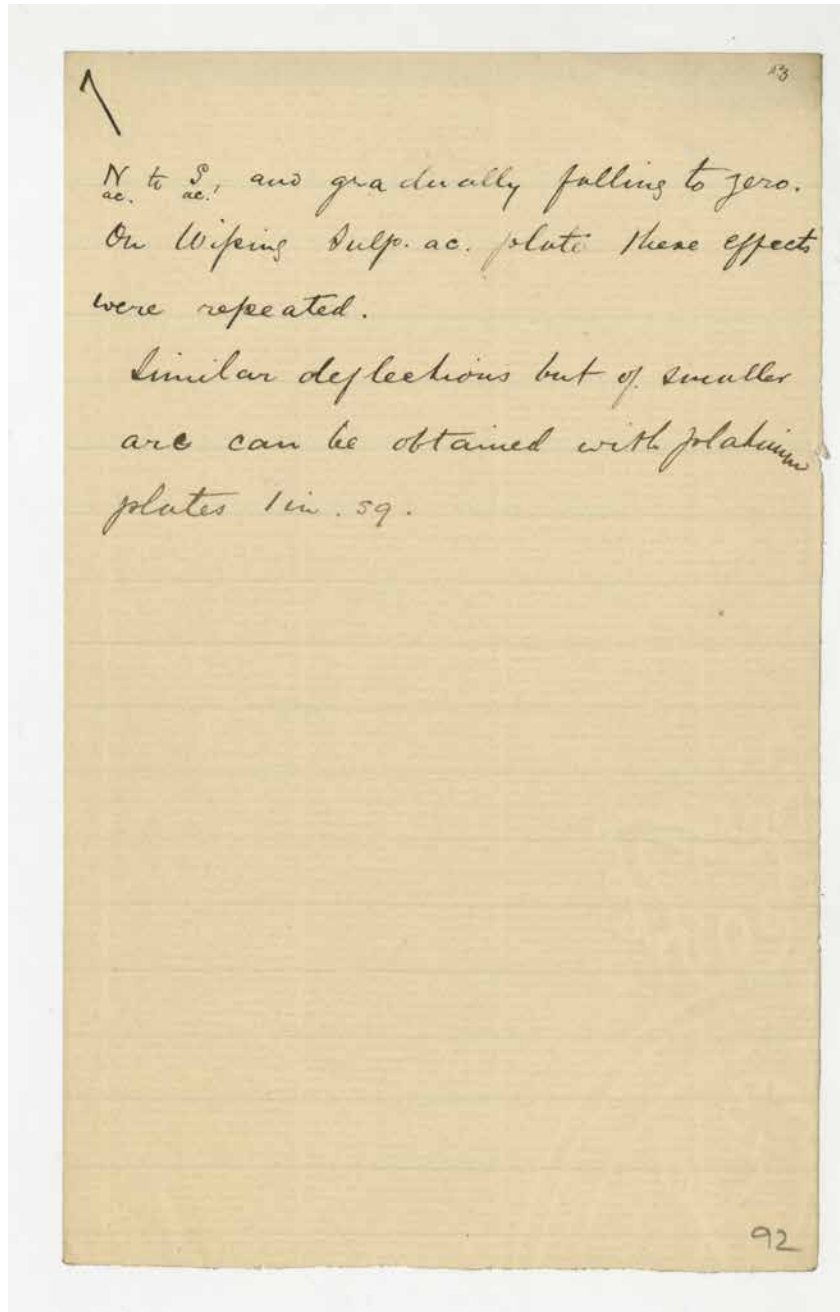 13
N ac. to S ac., and gradually falling to zero.
On Wiping Sulp. ac. plate these effects
were repeated.
Similar deflections but of smaller
arc can be obtained with platinum
plates 1 in. sq.
92